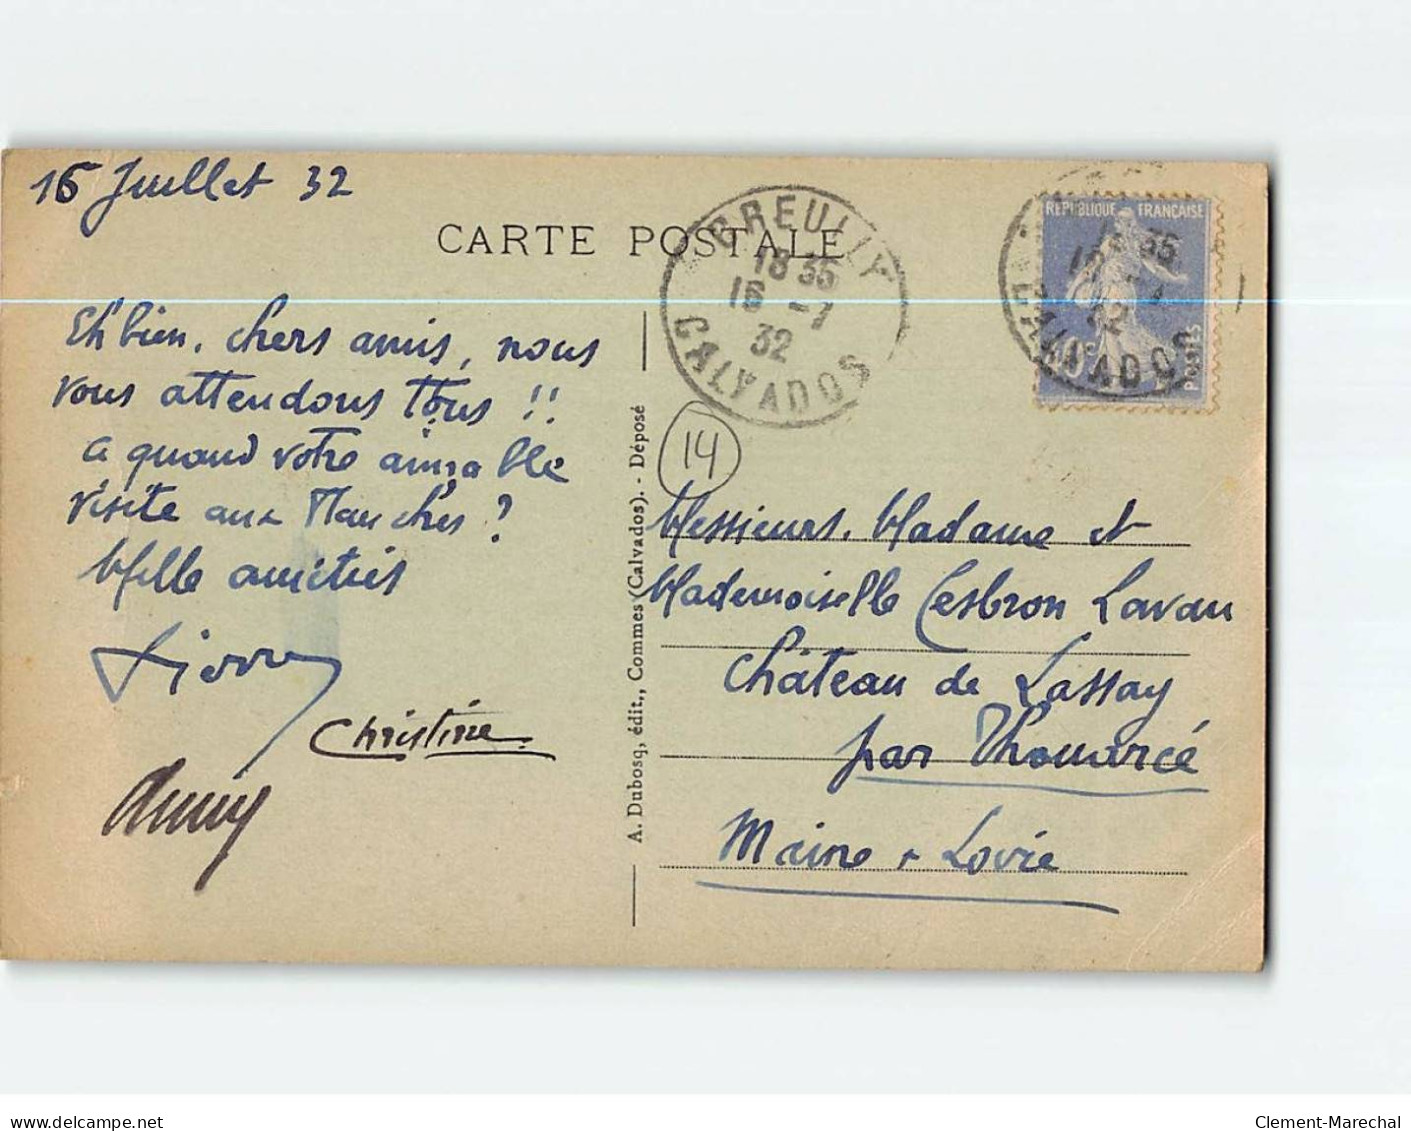 16 Juillet 32
CARTE POSTALE
CREULLY
18 35
16 -7
32
CALVADOS
REPUBLIQUE FRANÇAISE
POSTES
40c
35
32
CALVADOS
Eh bien, chers amis, nous
vous attendons tous !!
a quand votre aimable
visite aux Planches ?
Mille amitiés
Pierre
Christine
Anny
14
A. Dubosq, édit., Commes (Calvados). - Déposé
Messieurs. Madame et
Mademoiselle Cesbron Lavau
Château de Lassay
par Thouarcé
Maine & Loire
Clement-Marechal